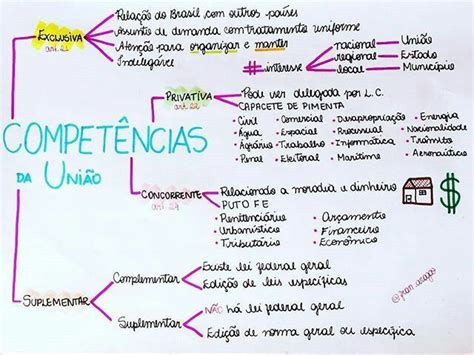 COMPETÊNCIAS
DA UNIÃO
EXCLUSIVA
art. 21
Relação do Brasil com outros países
Assunto de demanda com tratamento uniforme
Atenção para organizar e manter
Indelegável
# interesse
nacional União
regional Estado
local Município
PRIVATIVA
art. 22
Pode ser delegada por L.C.
CAPACETE DE PIMENTA
• Civil • Comercial • Desapropriação • Energia
• Água • Espacial • Processual • Nacionalidade
• Agrário • Trabalho • Informática • Trânsito
• Penal • Eleitoral • Marítimo • Aeronáutico
CONCORRENTE
art. 24
Relacionado a moradia e dinheiro
PUTO FE
• Penitenciário • Orçamento
• Urbanístico • Financeiro
• Tributário • Econômico
$
SUPLEMENTAR
Complementar
Existe lei federal geral
Edição de leis específicas
Suplementar
NÃO há lei federal geral
Edição de norma geral ou específica